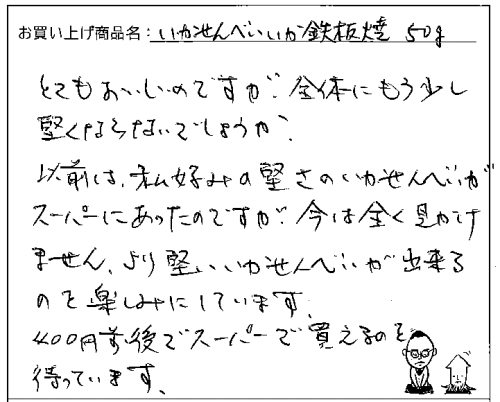 お買い上げ商品名：いかせんべいいか鉄板焼 50g
とてもおいしいのですが、全体にもう少し
堅くならないでしょうか、
以前は、私好みの堅さのいかせんべいが
スーパーにあったのですが、今は全く見かけ
ません、より堅いいかせんべいが出来る
のを楽しみにしています、
400円前後でスーパーで買えるのを
待っています、